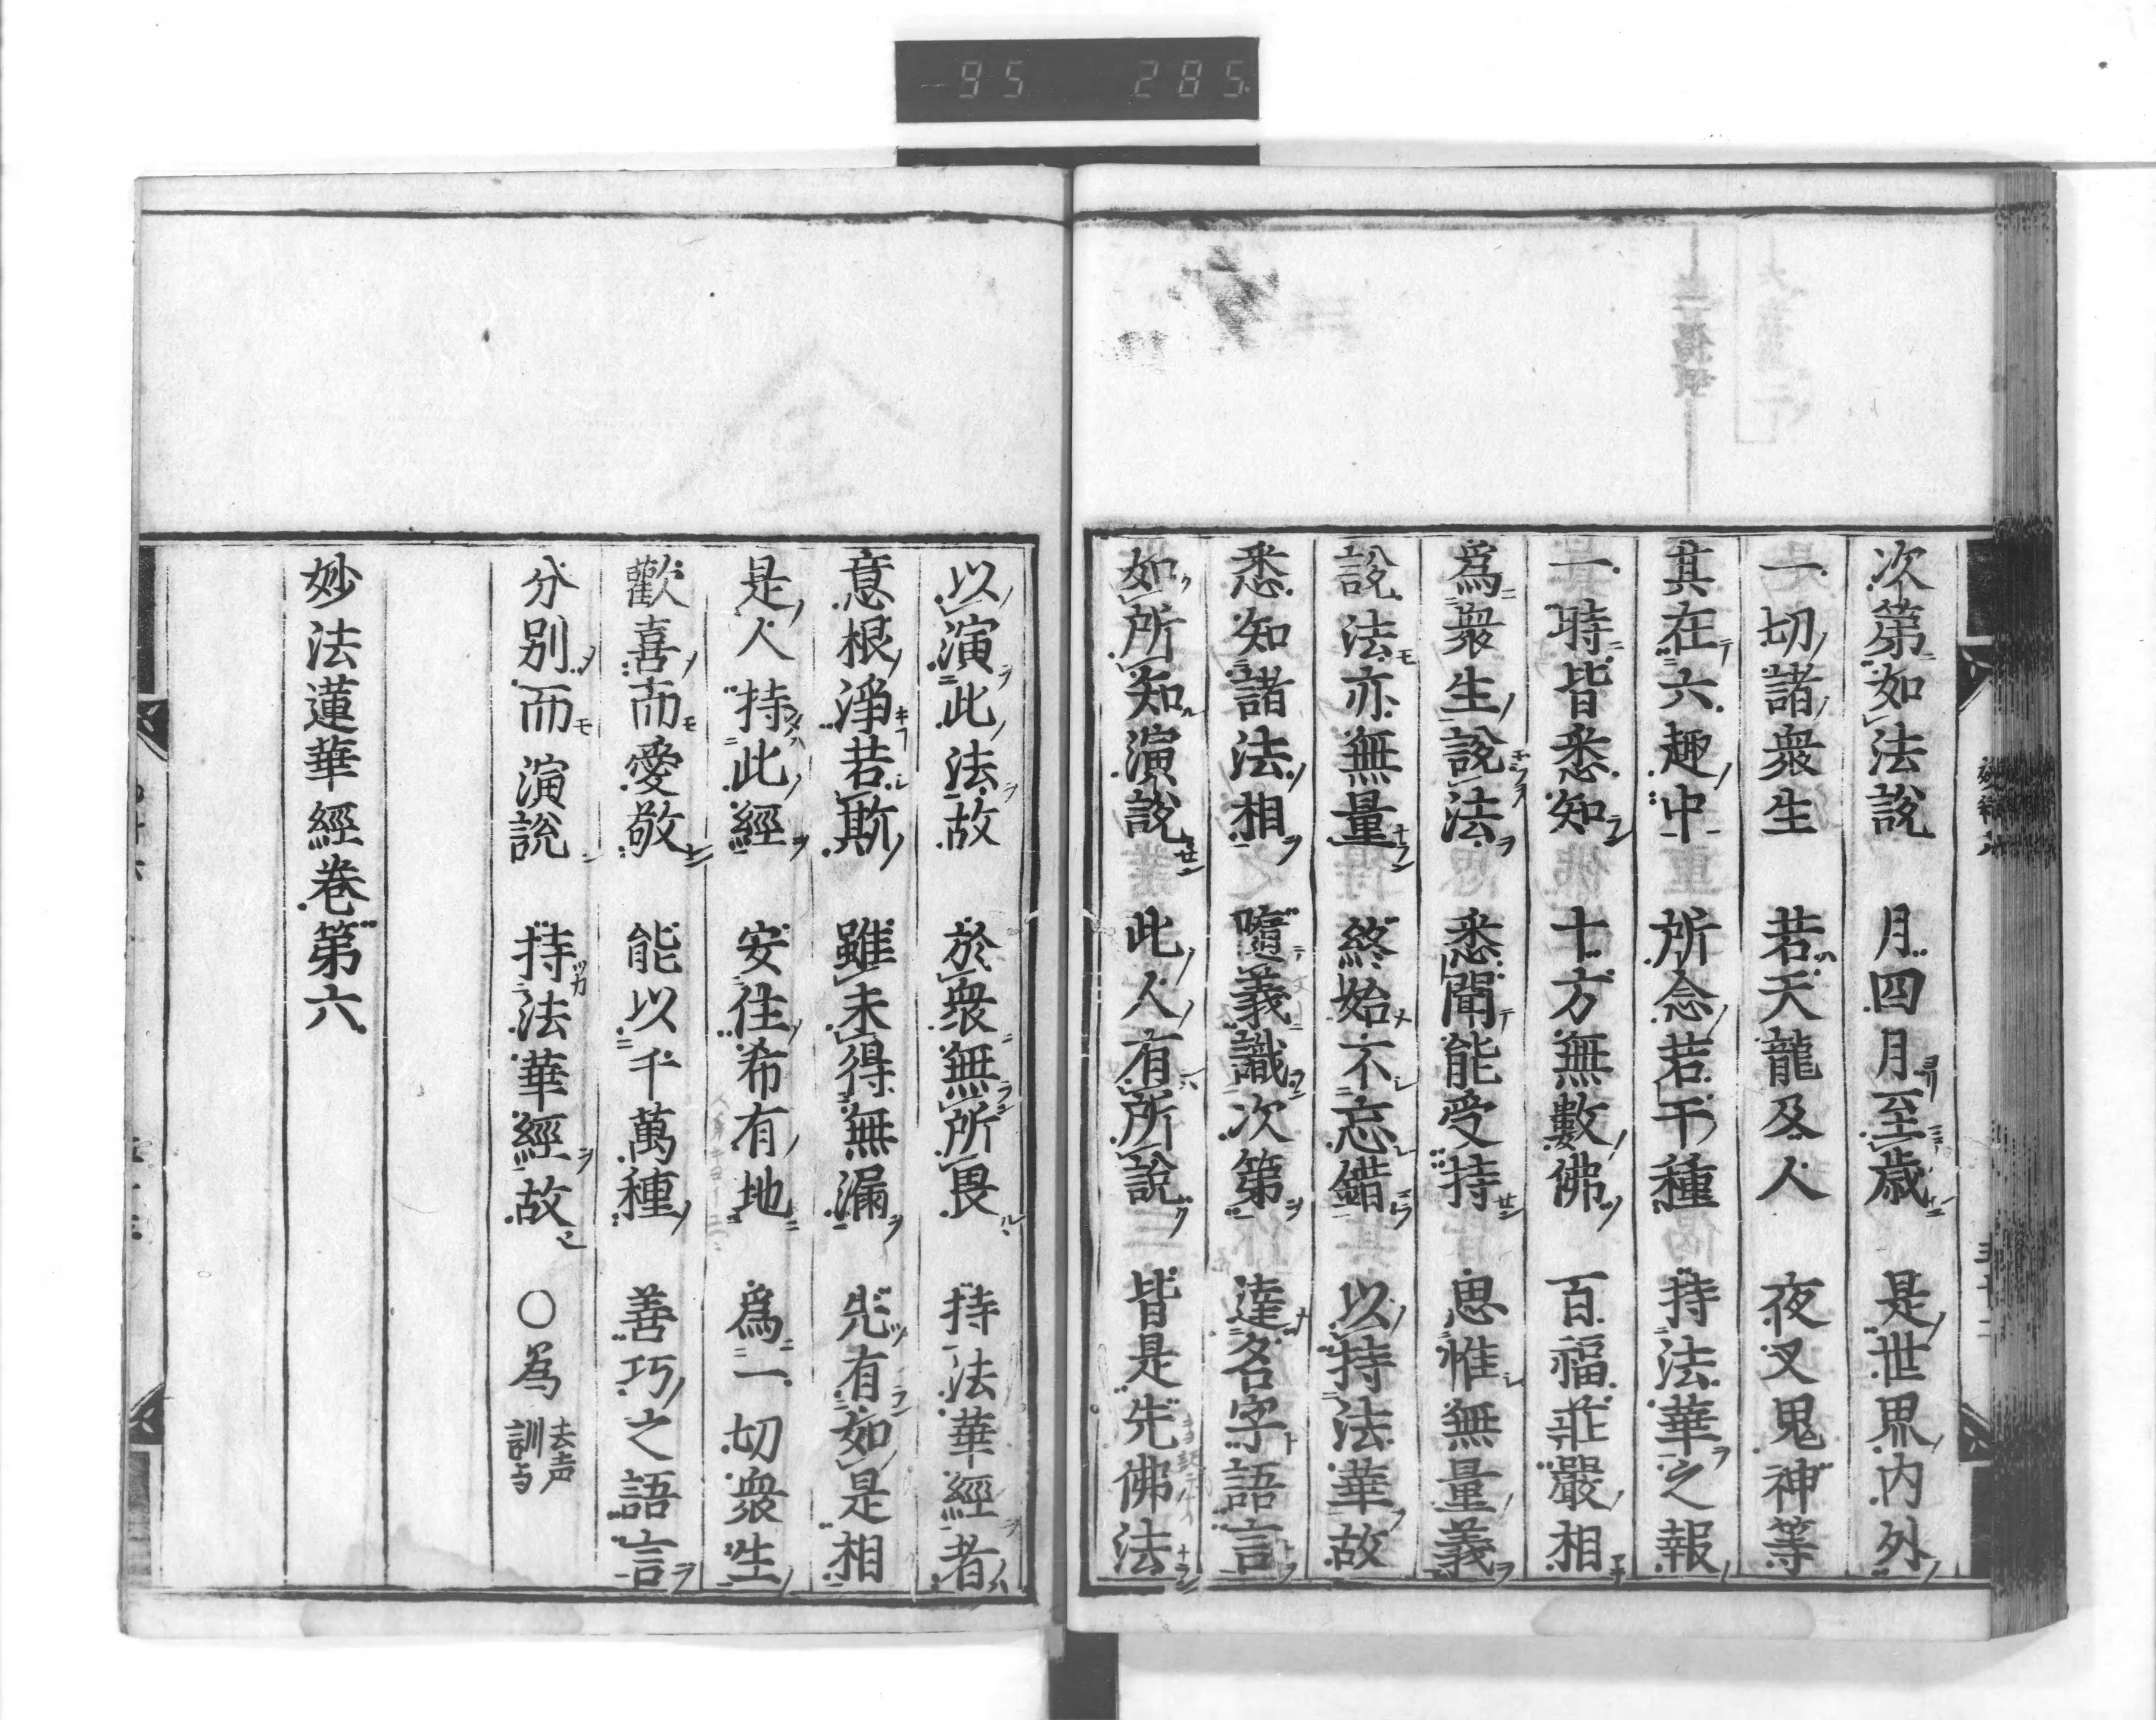 -95 285
次第如法說 月四月至歲 是世界內外
一切諸衆生 若天龍及人 夜叉鬼神等
其在六趣中 所念若干種 持法華之報
一時皆悉知 十方無數佛 百福莊嚴相
爲衆生說法 悉聞能受持 思惟無量義
說法亦無量 終始不忘錯 以持法華故
悉知諸法相 隨義識次第 達名字語言
如所知演說 此人有所說 皆是先佛法
以演此法故 於衆無所畏 持法華經者
意根淨若斯 雖未得無漏 先有如是相
是人持此經 安住希有地 爲一切衆生
歡喜而愛敬 能以千萬種 善巧之語言
分別而演說 持法華經故 ○爲 去声 訓与
妙法蓮華經卷第六